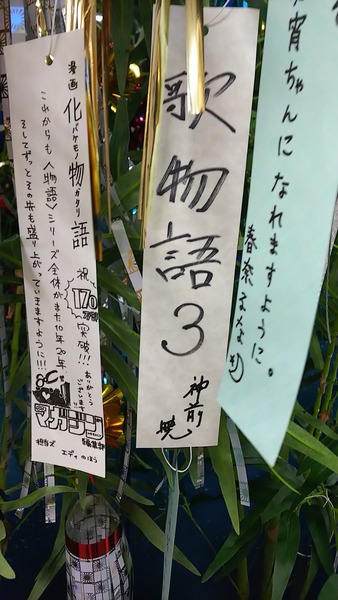 宵ちゃんになれますように。
春奈るな
歌物語3
神前 暁
漫画 化物語
バケモノガタリ
祝 170万部 突破!!!
ありがとうございます
これからも〈物語〉シリーズ全体がまた10年20年、
そしてずっとその先も盛り上がっていきますように!!!
マガジン
編集部
担当ズ
エディのほう